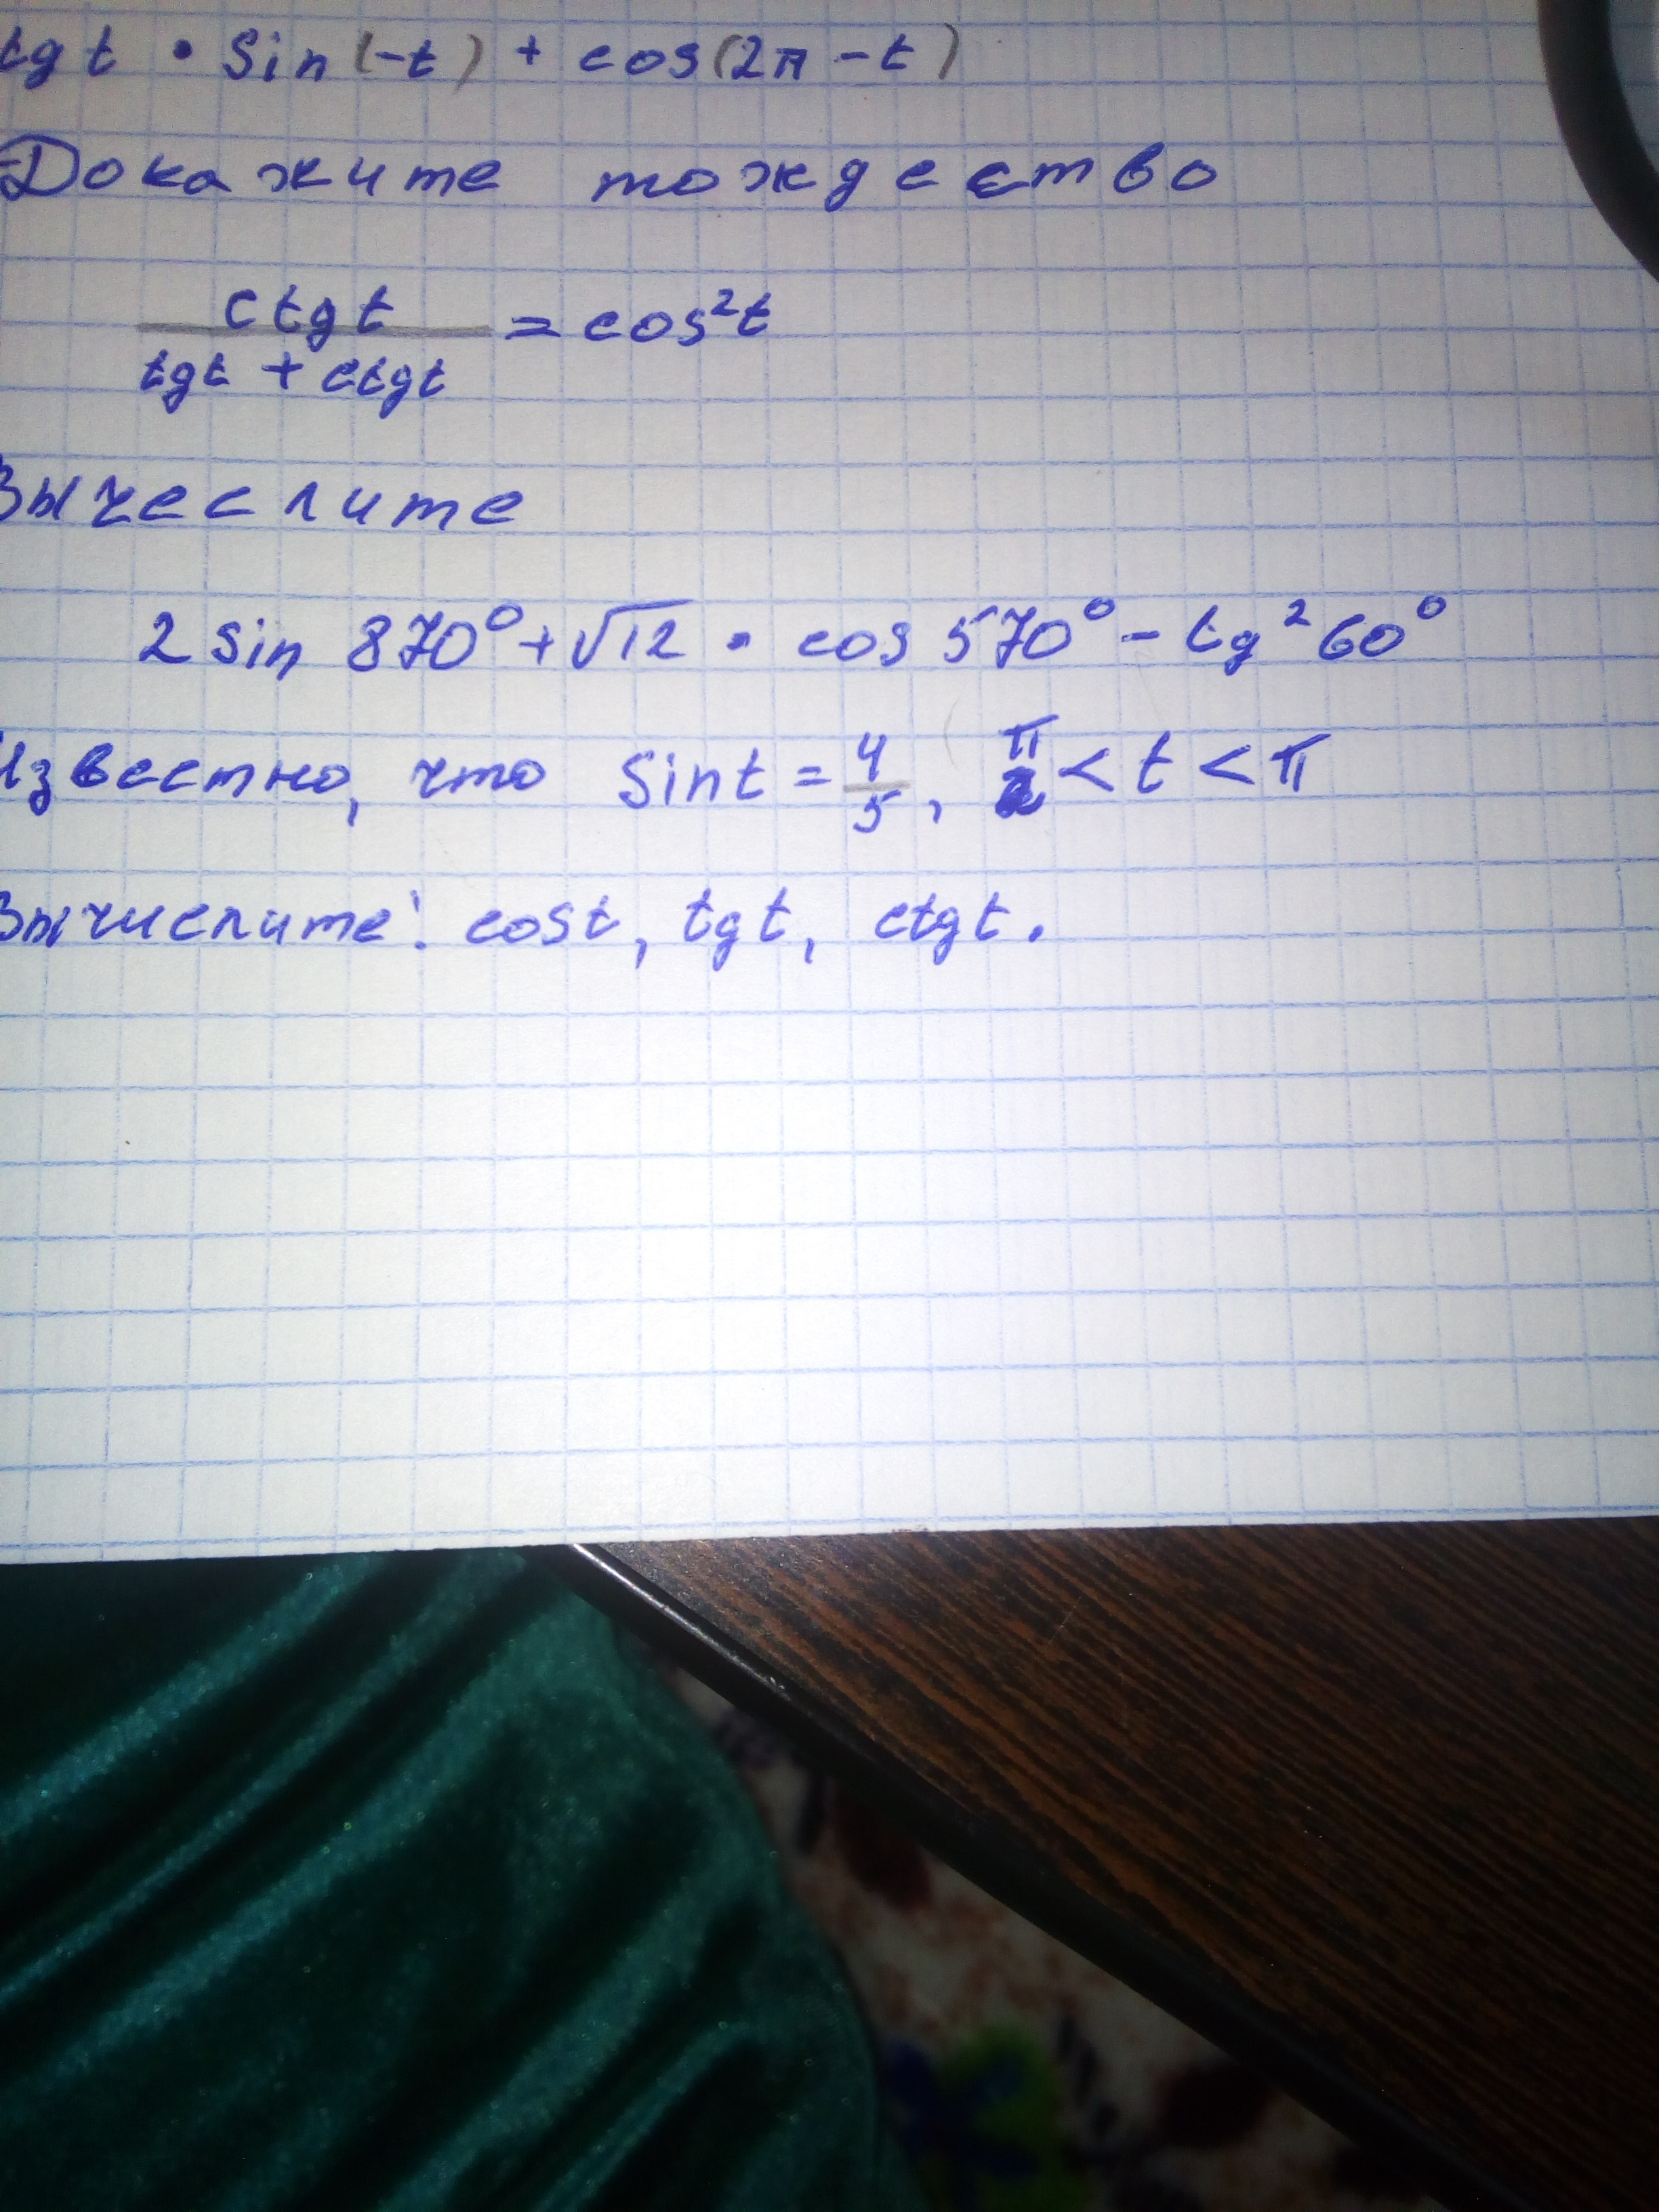 tgt · sin(-t) + cos(2π - t)
Докажите тождество
ctgt
tgt + ctgt
= cos²t
Вычеслите
2 sin 870° + √12 · cos 570° - tg²60°
Известно, что sint = 4/5, π/2 < t < π
Вычислите: cost, tgt, ctgt.